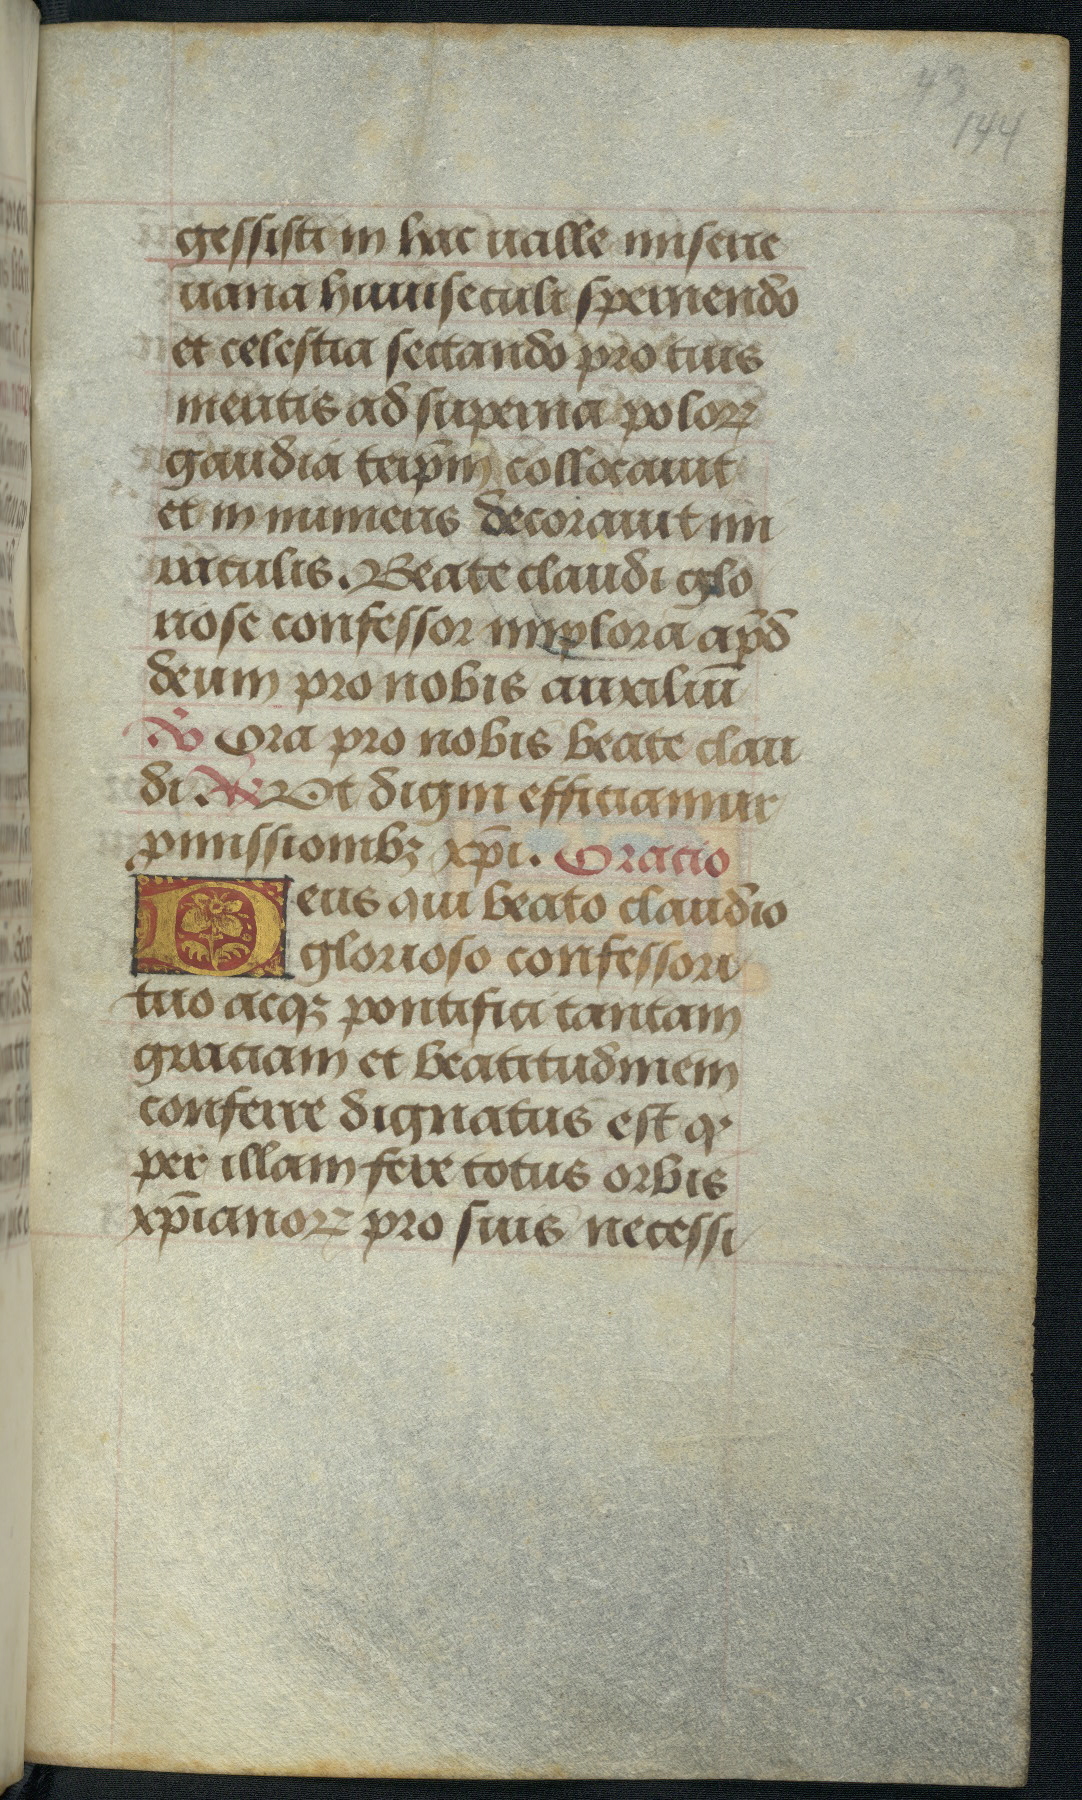 43
144
gessisti in hac ualle miserie
uana huius seculi spernendo
et celestia sectando pro tuis
meritis ad superna poloꝝ
gaudia teip̄m collocauit
et in numeris decorauit mi
raculis. Beate claudi glo
riose confessor implora ap̄d
deum pro nobis auxiliū
℣ Ora pro nobis beate clau
di. ℟ Ut digni efficiamur
ꝓmissionibꝫ xp̄i. Oratio
Deus qui beato claudio
glorioso confessori
tuo acqꝫ pontifici tantam
graciam et beatitudinem
conferre dignatus est qͥ
per illam fere totus orbis
xp̄ianoꝝ pro suis necessi